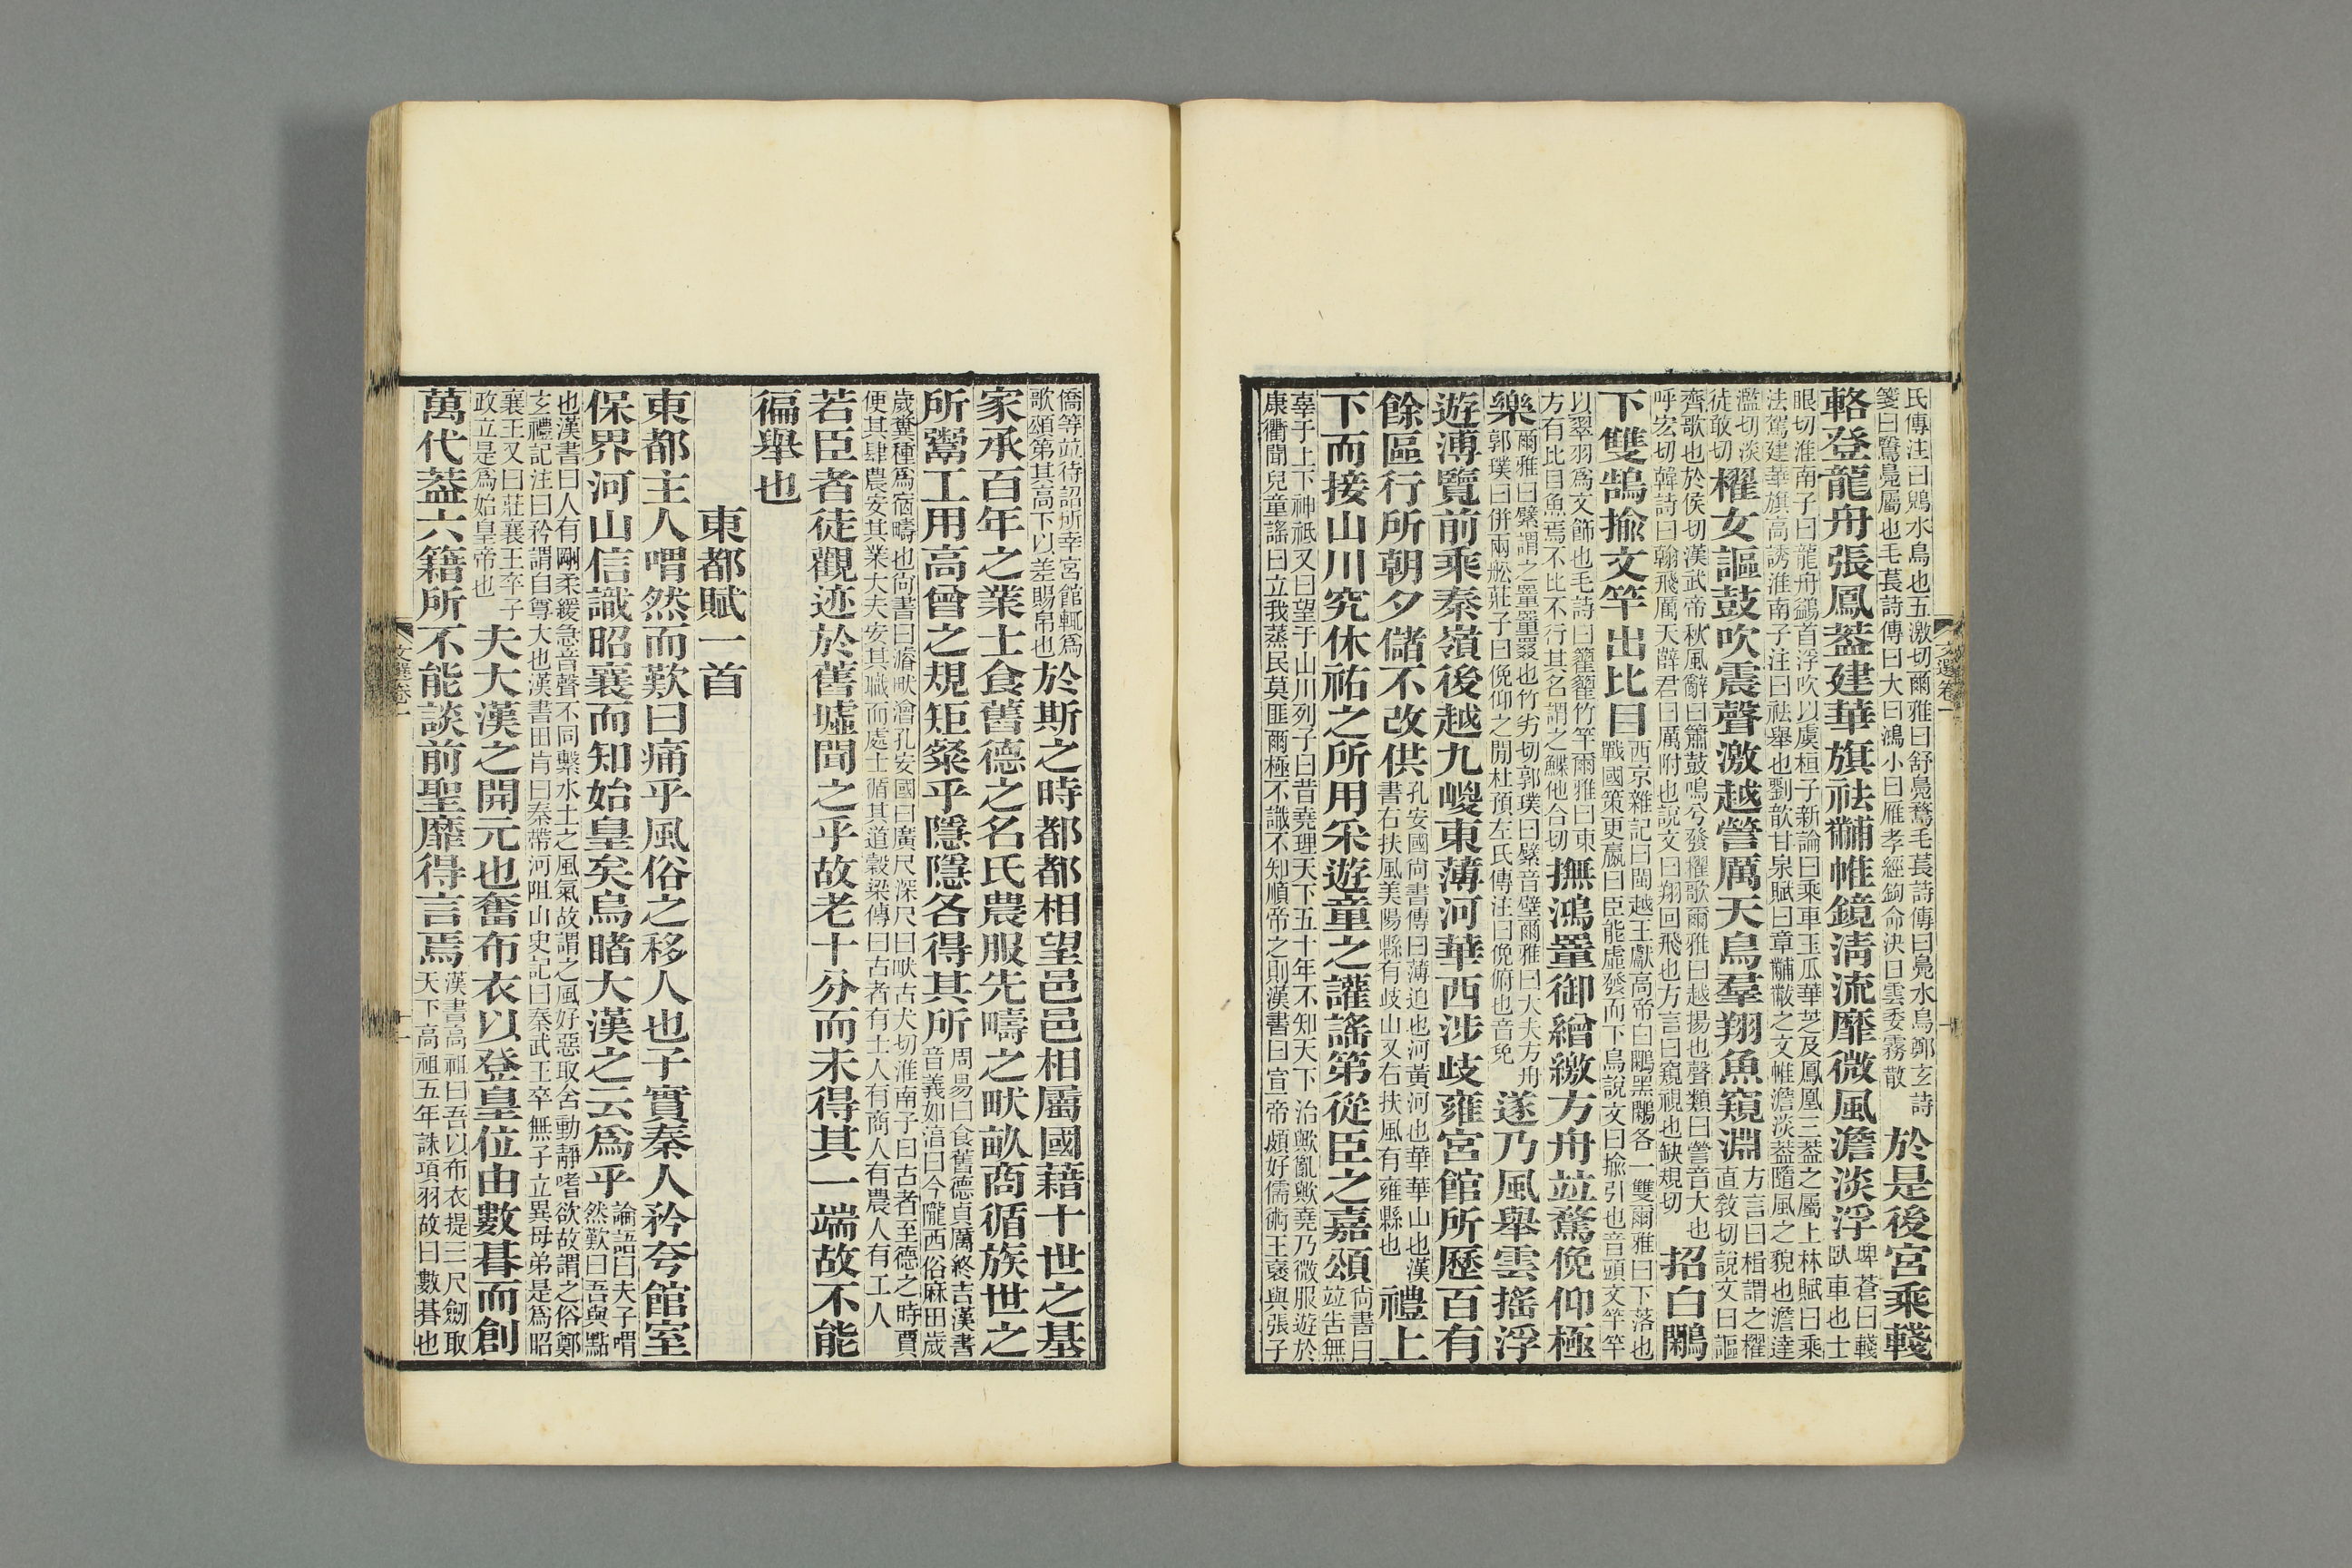 氏傳注曰鶂水鳥也五激切爾雅曰舒鳧鶩毛萇詩傳曰鳧水鳥鄭玄詩
箋曰鷖鳧屬也毛萇詩傳曰大曰鴻小曰雁孝經鉤命決曰雲委霧散
於是後宮乘輚
輅登龍舟張鳳葢建華旗祛黼帷鏡清流靡微風澹淡浮
埤蒼曰輚
臥車也士
眼切淮南子曰龍舟鷁首浮吹以虞桓子新論曰乘車玉瓜華芝及鳳凰三葢之屬上林賦曰乘
法駕建華旗高誘淮南子注曰祛舉也劉歆甘泉賦曰章黼黻之文帷澹淡葢隨風之貌也澹達
濫切淡
徒敢切
櫂女謳鼓吹震聲激越謍厲天鳥羣翔魚窺淵
方言曰楫謂之櫂
直敎切說文曰謳
齊歌也於侯切漢武帝秋風辭曰簫鼓鳴兮發櫂歌爾雅曰越揚也聲類曰謍音大也
呼宏切韓詩曰翰飛厲天薛君曰厲附也說文曰翔回飛也方言曰窺視也缺規切
招白鷴
下雙鵠揄文竿出比目
西京雜記曰閩越王獻高帝白鷴黑鷴各一雙爾雅曰下落也
戰國策更嬴曰臣能虛發而下鳥說文曰揄引也音頭文竿竿
以翠羽爲文飾也毛詩曰籊籊竹竿爾雅曰東
方有比目魚焉不比不行其名謂之鰈他合切
撫鴻罿御繒繳方舟竝騖俛仰極
樂
爾雅曰繴謂之罿罿罬也竹劣切郭璞曰繴音壁爾雅曰大夫方舟
郭璞曰併兩舩莊子曰俛仰之閒杜預左氏傳注曰俛俯也音免
遂乃風舉雲搖浮
遊溥覽前乘秦嶺後越九嵕東薄河華西涉歧雍宮館所歷百有
餘區行所朝夕儲不改供
孔安國尙書傳曰薄迫也河黃河也華華山也漢
書右扶風美陽縣有歧山又右扶風有雍縣也
禮上
下而接山川究休祐之所用采遊童之讙謠第從臣之嘉頌
尙書曰
竝告無
辜于上下神祇又曰望于山川列子曰昔堯理天下五十年不知天下治歟亂歟堯乃微服遊於
康衢聞兒童謠曰立我蒸民莫匪爾極不識不知順帝之則漢書曰宣帝頗好儒術王襃與張子
文選卷一
僑等竝待詔所幸宮館輒爲
歌頌第其高下以差賜帛也
於斯之時都都相望邑邑相屬國藉十世之基
家承百年之業士食舊德之名氏農服先疇之畎畝商循族世之
所鬻工用高曾之規矩粲乎隱隱各得其所
周易曰食舊德貞厲終吉漢書
音義如淳曰今隴西俗麻田歲
歲糞種爲宿疇也尙書曰濬畎澮孔安國曰廣尺深尺曰畎古犬切淮南子曰古者至德之時賈
便其肆農安其業大夫安其職而處士循其道穀梁傳曰古者有士人有商人有農人有工人
若臣者徒觀迹於舊墟聞之乎故老十分而未得其一端故不能
徧舉也
東都賦一首
東都主人喟然而歎曰痛乎風俗之移人也子實秦人矜夸館室
保界河山信識昭襄而知始皇矣烏睹大漢之云爲乎
論語曰夫子喟
然歎曰吾與點
也漢書曰人有剛柔緩急音聲不同繫水土之風氣故謂之風好惡取舍動靜嗜欲故謂之俗鄭
玄禮記注曰矜謂自尊大也漢書田肯曰秦帶河阻山史記曰秦武王卒無子立異母弟是爲昭
襄王又曰莊襄王卒子
政立是爲始皇帝也
夫大漢之開元也奮布衣以登皇位由數朞而創
萬代葢六籍所不能談前聖靡得言焉
漢書高祖曰吾以布衣提三尺劒取
天下高祖五年誅項羽故曰數朞也
文選卷一
十一